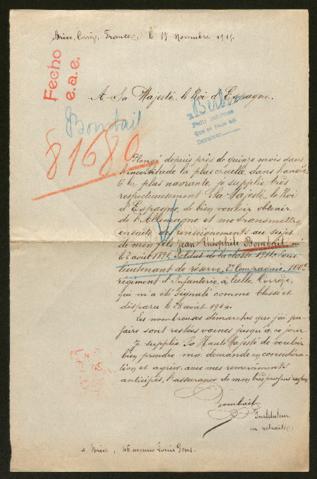 Brive, Corrèze, France, le 13 Novembre 1915.
Fecho
e.a.e.
A Sa Majesté le Roi d'Espagne.
Bombail
81680
Plongé depuis près de quinze mois dans
l'incertitude la plus cruelle, dans l'anxiété
la plus navrante, je supplie très
respectueusement Sa Majesté le Roi
d'Espagne, de bien vouloir obtenir
de l'Allemagne et me transmettre
ensuite, renseignements au sujet
de mon fils Jean Théophile Bombail,
Soldat de la classe 1911, Sous
lieutenant de réserve, Compagnie,
régiment d'Infanterie, à Tulle Corrèze,
qui m'a été signalé comme blessé et
disparu le 28 août 1914.
Les nombreuses démarches que j'ai pu
faire sont restées vaines jusqu'à ce jour.
Je supplie Sa Haute Majesté de vouloir
bien prendre ma demande en considéra-
tion et agréer, avec mes remerciements
anticipés, l'assurance de mon très profond respect.
Bombail
Instituteur
en retraite
à Brive, 46 avenue